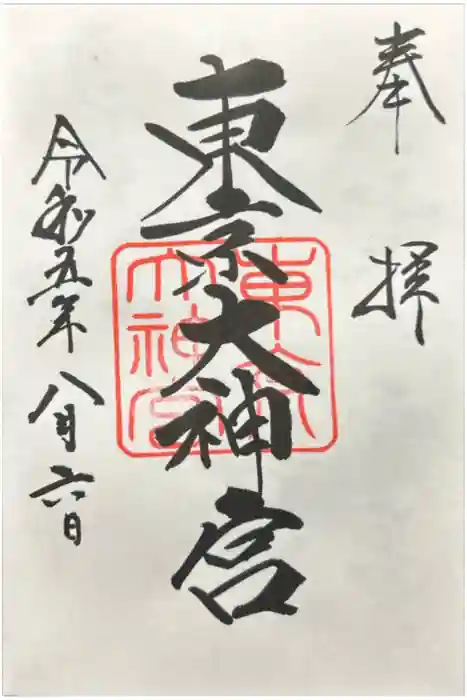 奉拝
東京大神宮
東京
大神宮
令和五年八月六日